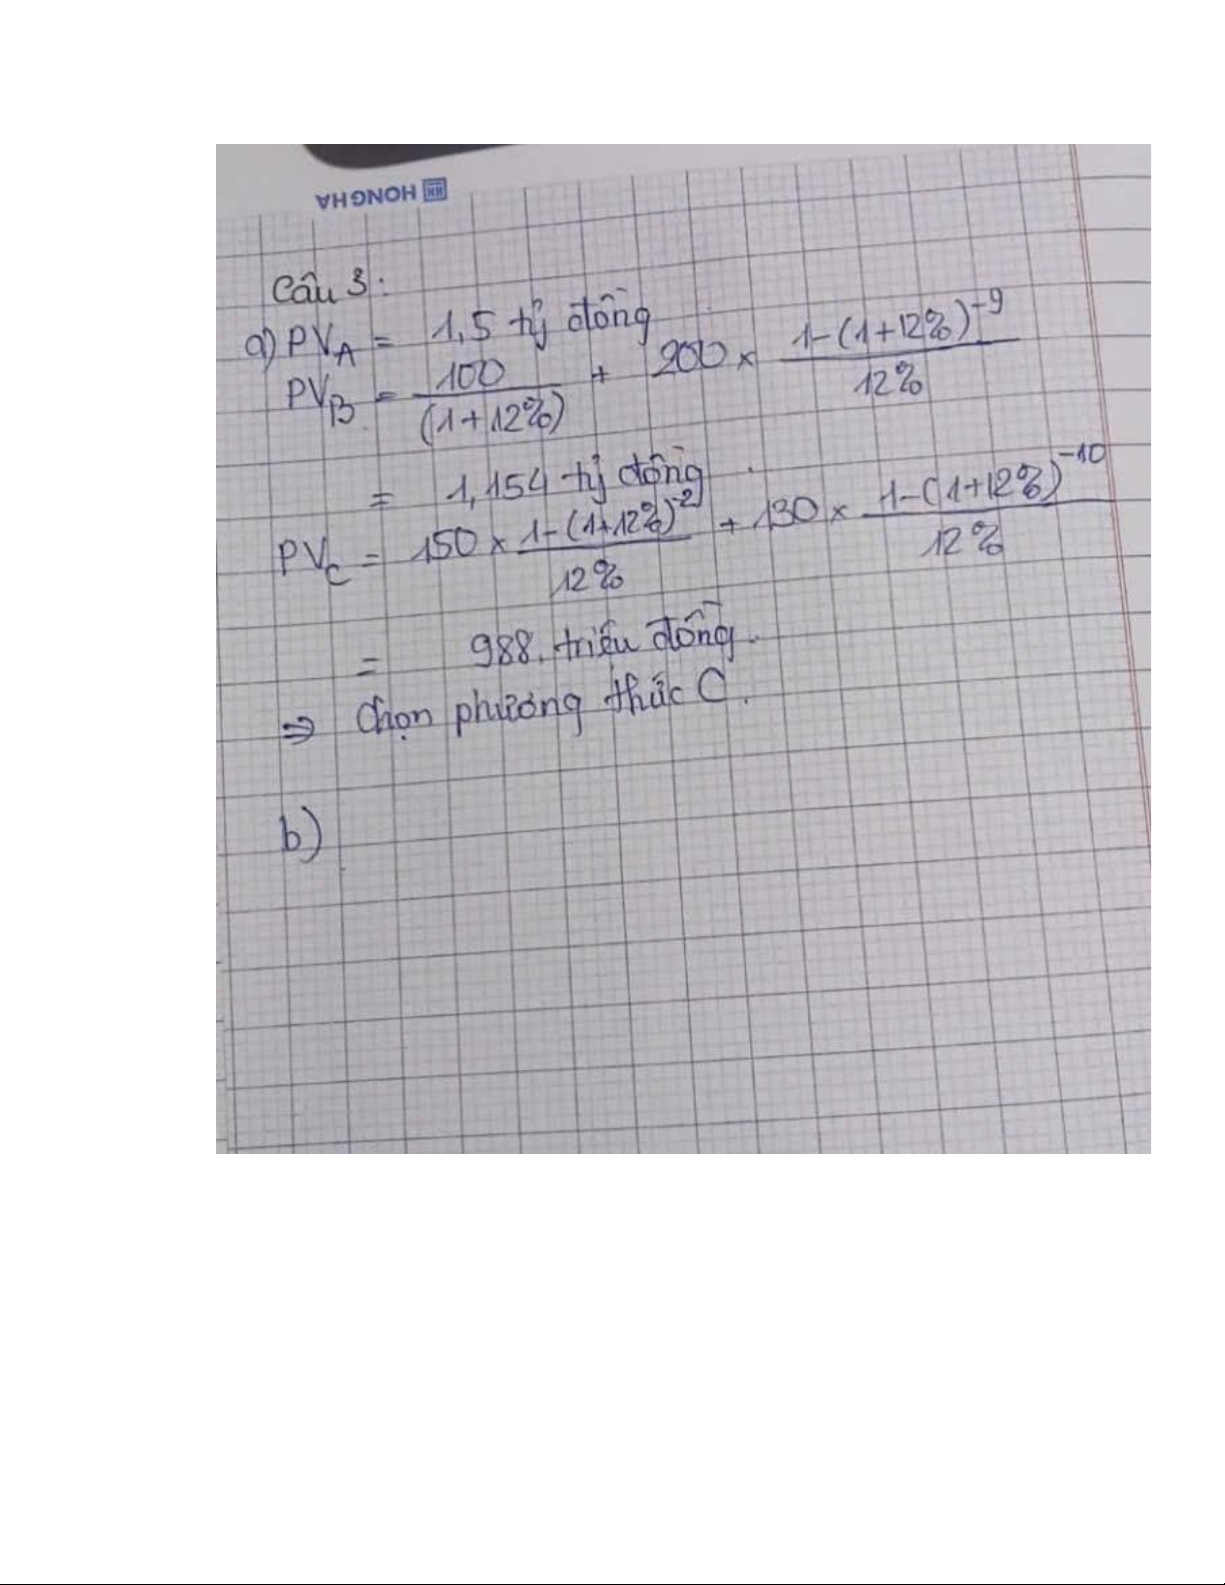 HONGHA
Câu 3:
a) PV_A = 1,5 tỷ đồng
PV_B = 100/(1+12%) + 200 × (1-(1+12%)^-9)/12%
= 1,154 tỷ đồng
PV_C = 150 × (1-(1+12%)^-2)/12% + 130 × (1-(1+12%)^-10)/12%
= 988. triệu đồng.
⇒ Chọn phương thức C.
b)